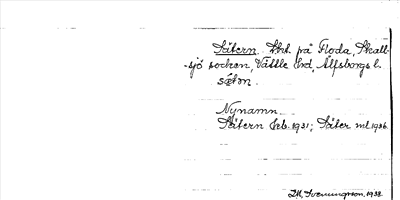 Sätern. Lht. på Floda, Skall-
-sjö socken, Vättle hd, Älfsborgs l.
sætən.
Nynamn.
Sätern Geb. 1931; Säter ml 1936.
I.M. Svenungsson. 1938.